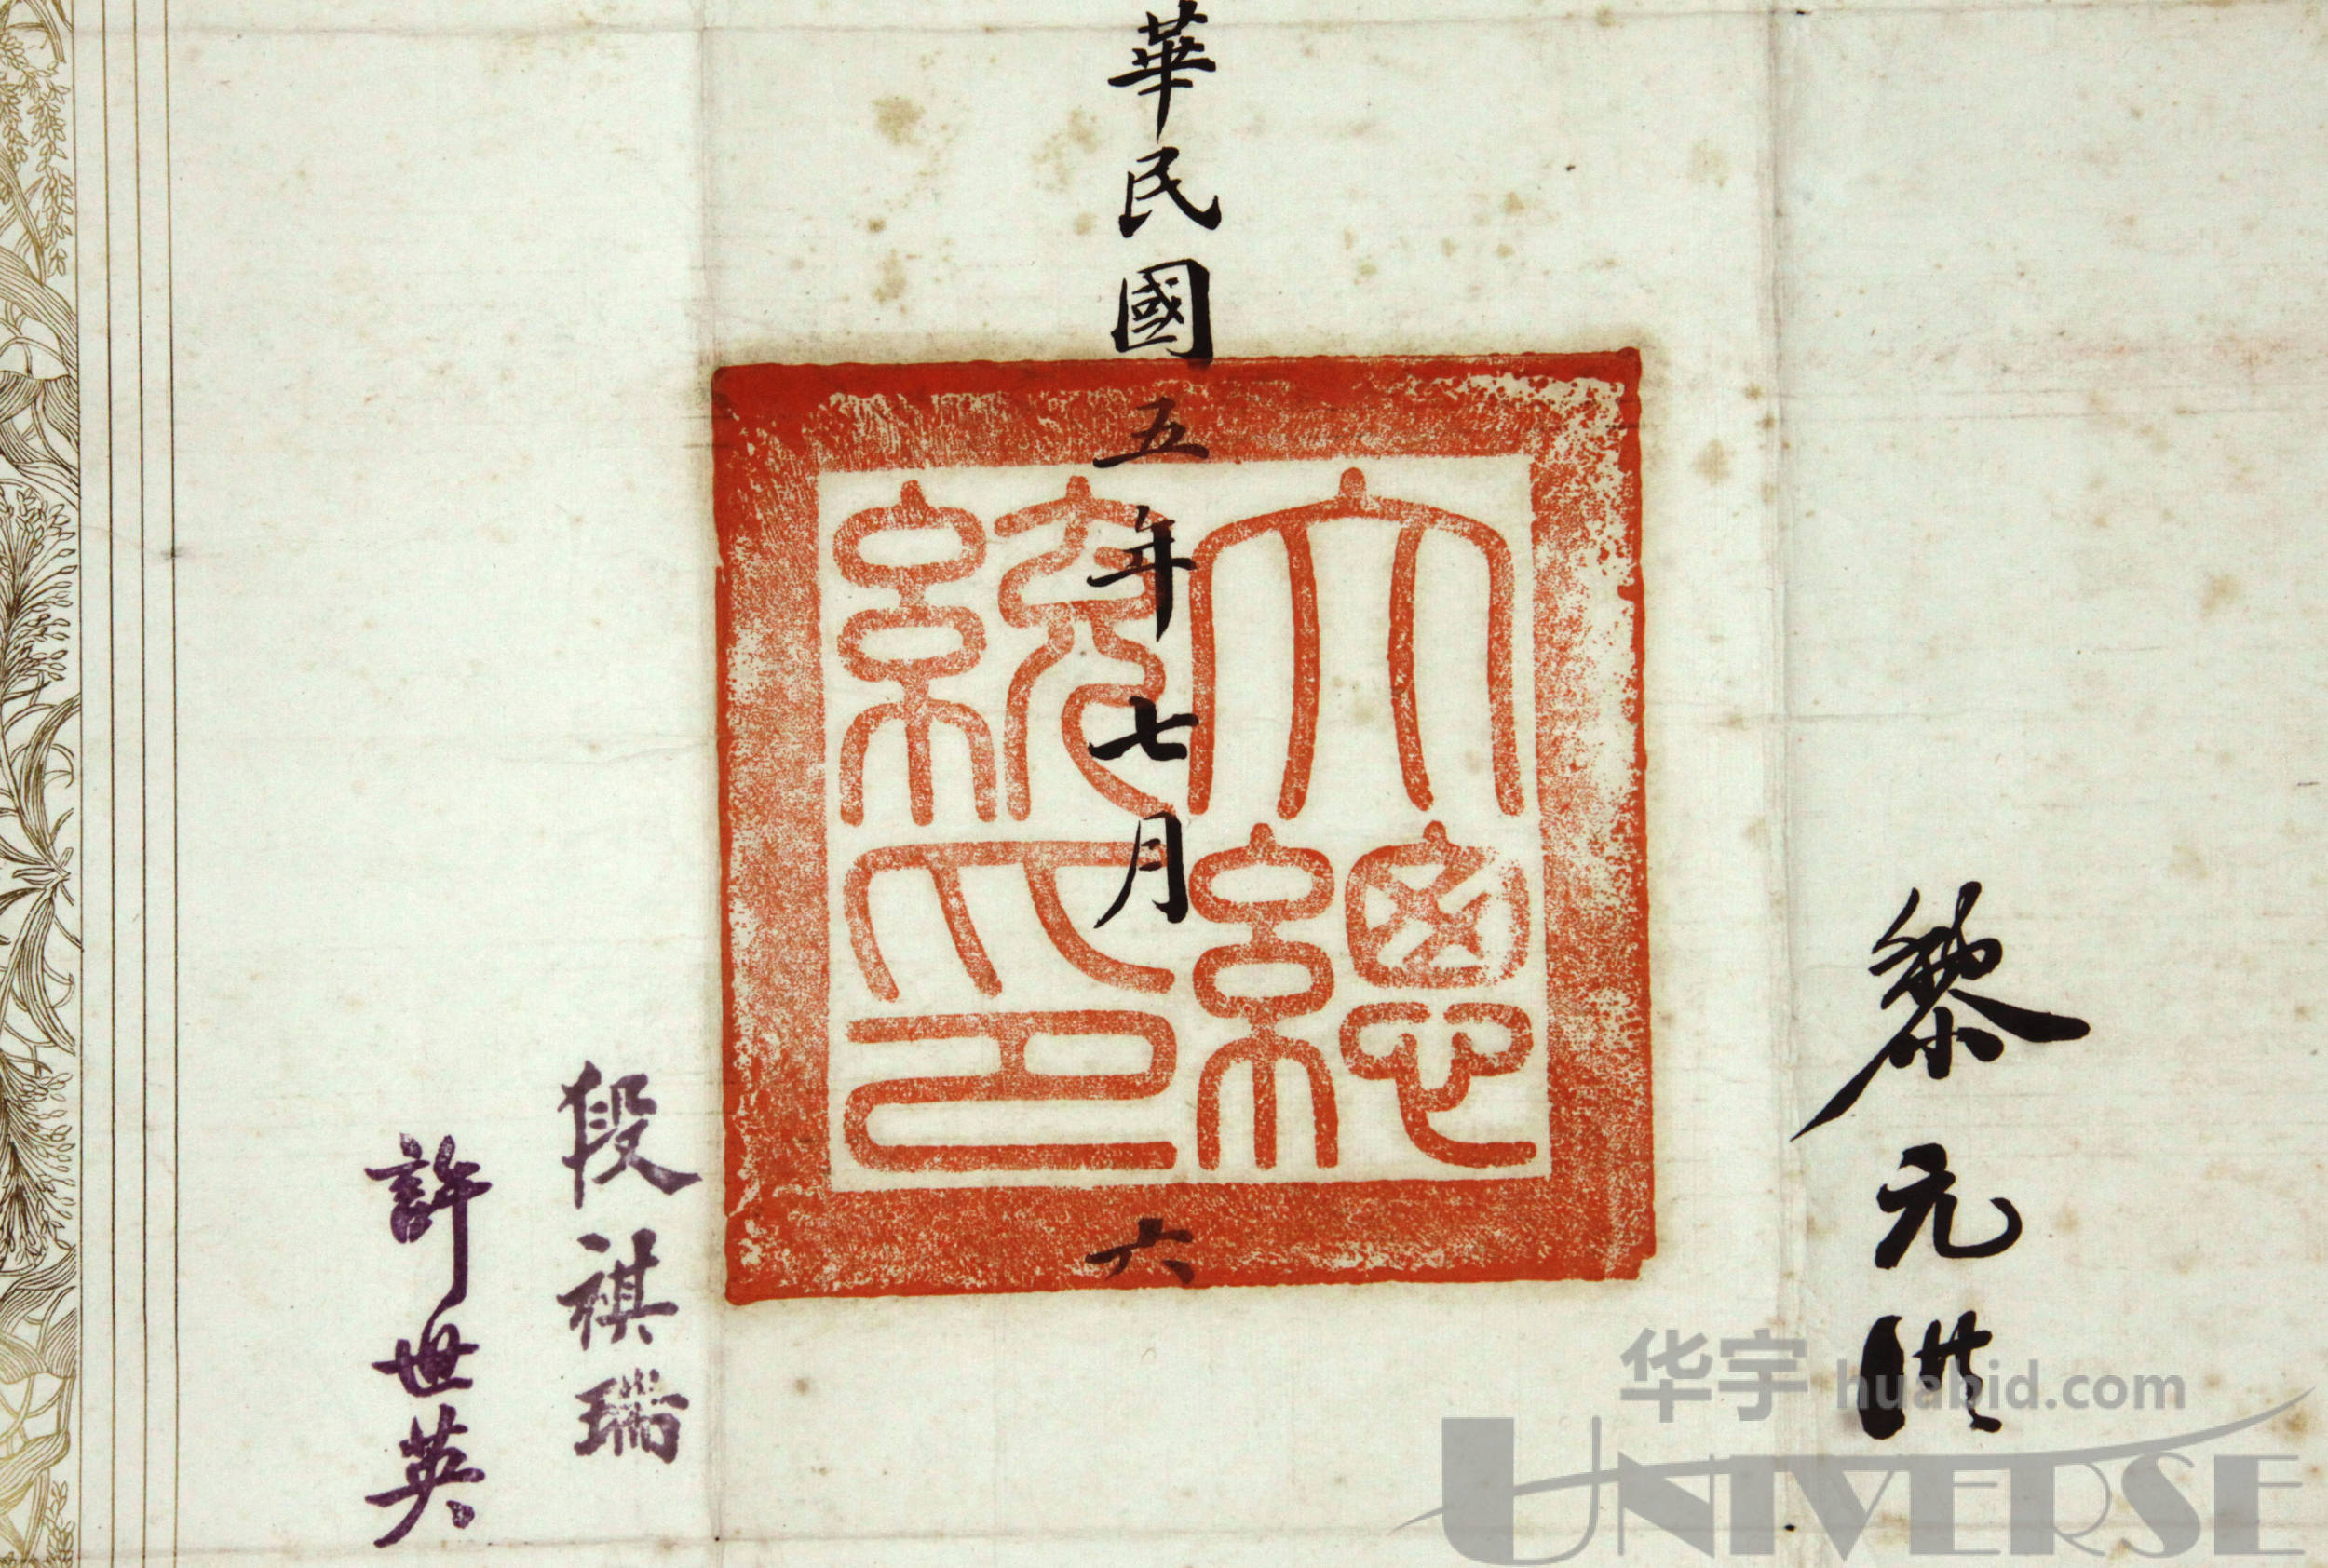 黎元洪
大總
統印
華民國五年七月六
段祺瑞
許世英
华宇 huabid.com
UNIVERSE